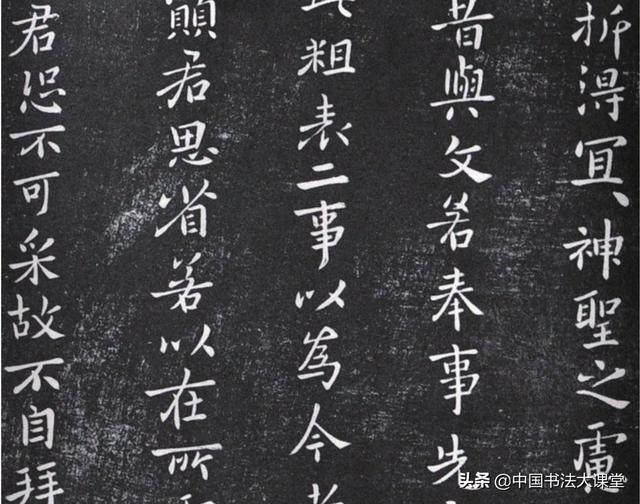 折得冝〻神聖之慮
昔與文若奉事先
粗表二事以為今
願君思省若以在所
君恐不可采故不自拜
头条 @中国书法大课堂